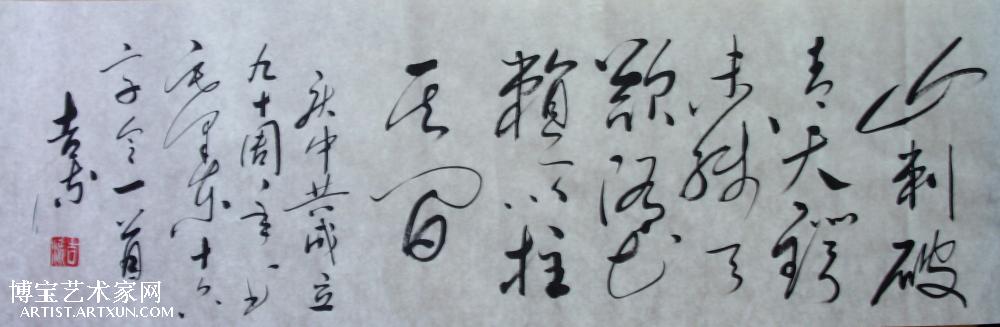 山刺破
青天锷
未残天
欲堕
赖以柱
其间
庆中共成立
九十周年书
毛泽东十六
字令一首
博宝艺术家网
ARTIST.ARTXUN.COM